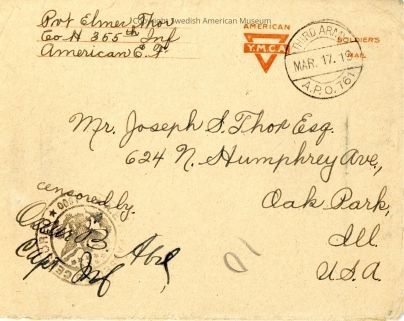 Copyright Swedish American Museum
Pvt Elmer Thor
Co H 355th Inf
American E. F.
AMERICAN
Y.M.C.A
SOLDIER'S
MAIL
THIRD ARMY
MAR. 17. 19
A.P.O. 761
Mr. Joseph S. Thor Esq.
624 N. Humphrey Ave.,
Oak Park,
Ill.
U.S.A.
censored by.
Capt Inf